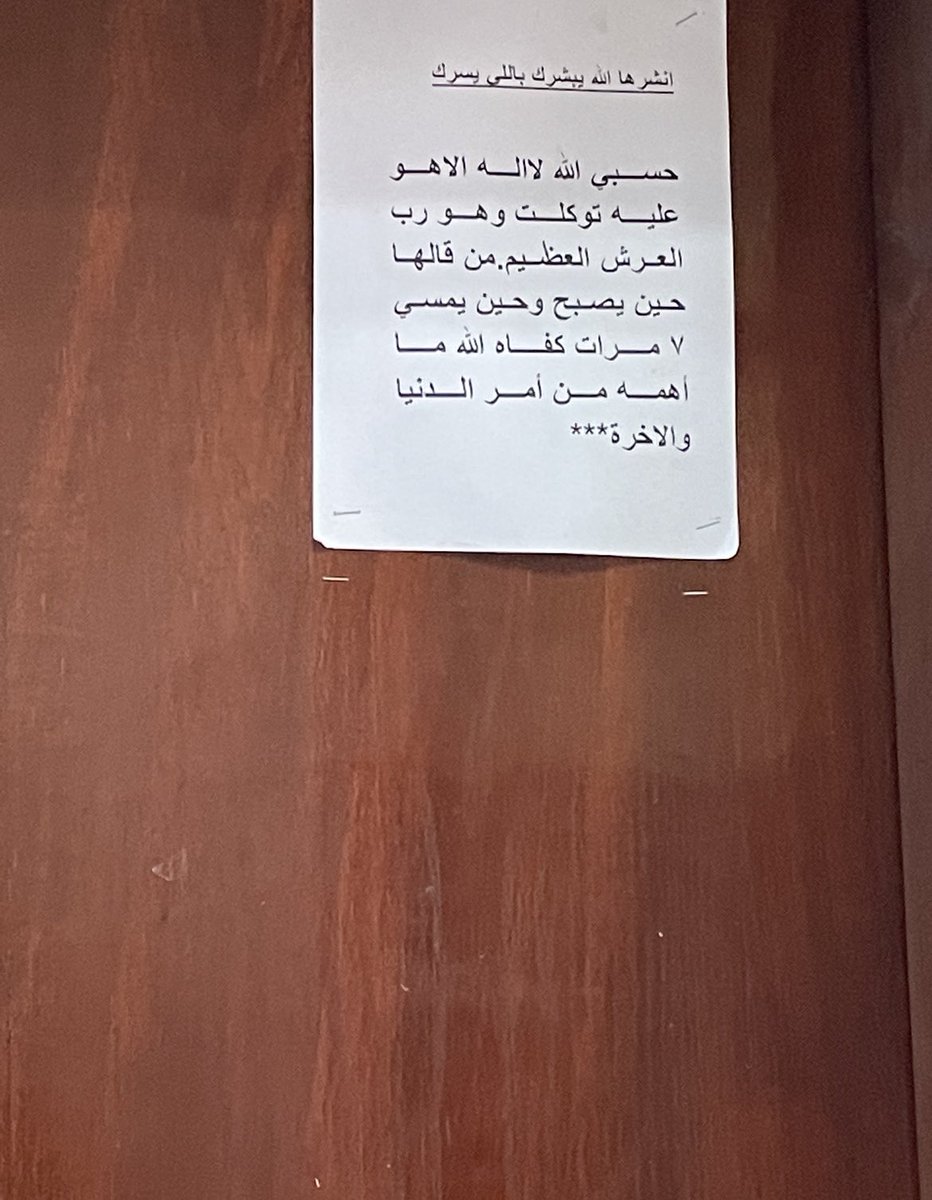 انشرها الله يبشرك باللي يسرك
حسبي الله لااله الاهو
عليه توكلت وهو رب
العرش العظيم.من قالها
حين يصبح وحين يمسي
٧ مرات كفاه الله ما
أهمه من أمر الدنيا
والاخرة***